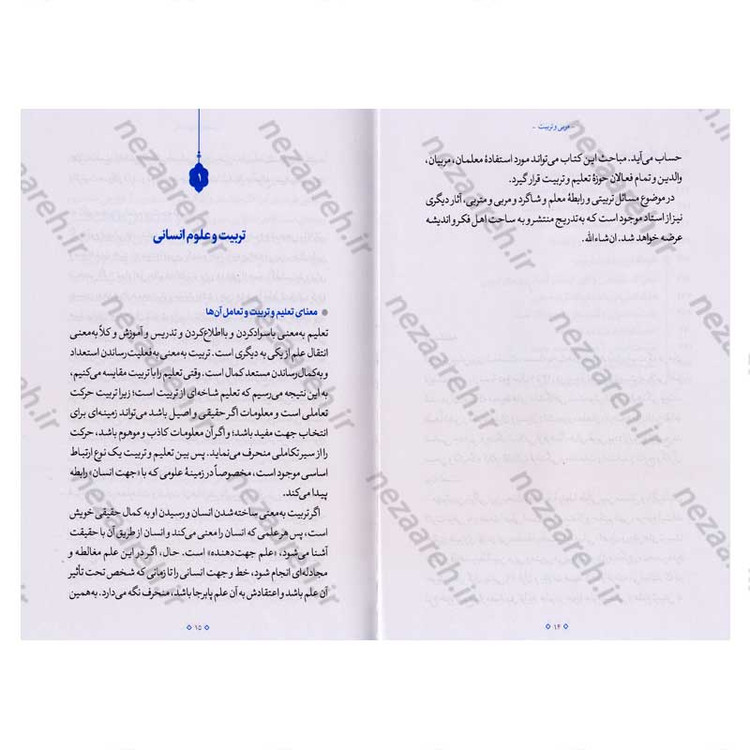 - مربی و تربیت -
حساب می‌آید. مباحث این کتاب می‌تواند مورد استفادهٔ معلمان، مربیان،
والدین و تمام فعالان حوزهٔ تعلیم و تربیت قرار گیرد.
در موضوع مسائل تربیتی و رابطهٔ معلم و شاگرد و مربی و متربی، آثار دیگری
نیز از استاد موجود است که به‌تدریج منتشر و به ساحت اهل فکر و اندیشه
عرضه خواهد شد. ان‌شاءالله.
۱۴
۱
تربیت و علوم انسانی
معنای تعلیم و تربیت و تعامل آن‌ها
تعلیم به‌معنی باسوادکردن و بااطلاع‌کردن و تدریس و آموزش و کلاً به‌معنی
انتقال علم از یکی به دیگری است. تربیت به‌معنی به‌فعلیت‌رساندن استعداد
و به‌کمال‌رساندن مستعد کمال است. وقتی تعلیم را با تربیت مقایسه می‌کنیم،
به این نتیجه می‌رسیم که تعلیم شاخه‌ای از تربیت است؛ زیرا تربیت حرکت
تعاملی است و معلومات اگر حقیقی و اصیل باشد می‌تواند زمینه‌ای برای
انتخاب جهت مفید باشد؛ و اگر آن معلومات کاذب و موهوم باشد، حرکت
را از سیر تکاملی منحرف می‌نماید. پس بین تعلیم و تربیت یک نوع ارتباط
اساسی موجود است، مخصوصاً در زمینهٔ علومی که با «جهت انسان» رابطه
پیدا می‌کند.
اگر تربیت به‌معنی ساخته‌شدن انسان و رسیدن او به کمال حقیقی خویش
است، پس هر علمی که انسان را معنی می‌کند و انسان از طریق آن با حقیقت
آشنا می‌شود، «علم جهت‌دهنده» است. حال، اگر در این علم مغالطه و
مجادله‌ای انجام شود، خط و جهت انسانی را تا زمانی که شخص تحت تأثیر
آن علم باشد و اعتقادش به آن علم پابرجا باشد، منحرف نگه می‌دارد. به همین
۱۵
nezaareh.ir
nezaareh.ir
nezaareh.ir
nezaareh.ir
nezaareh.ir
nezaareh.ir
nezaareh.ir
nezaareh.ir